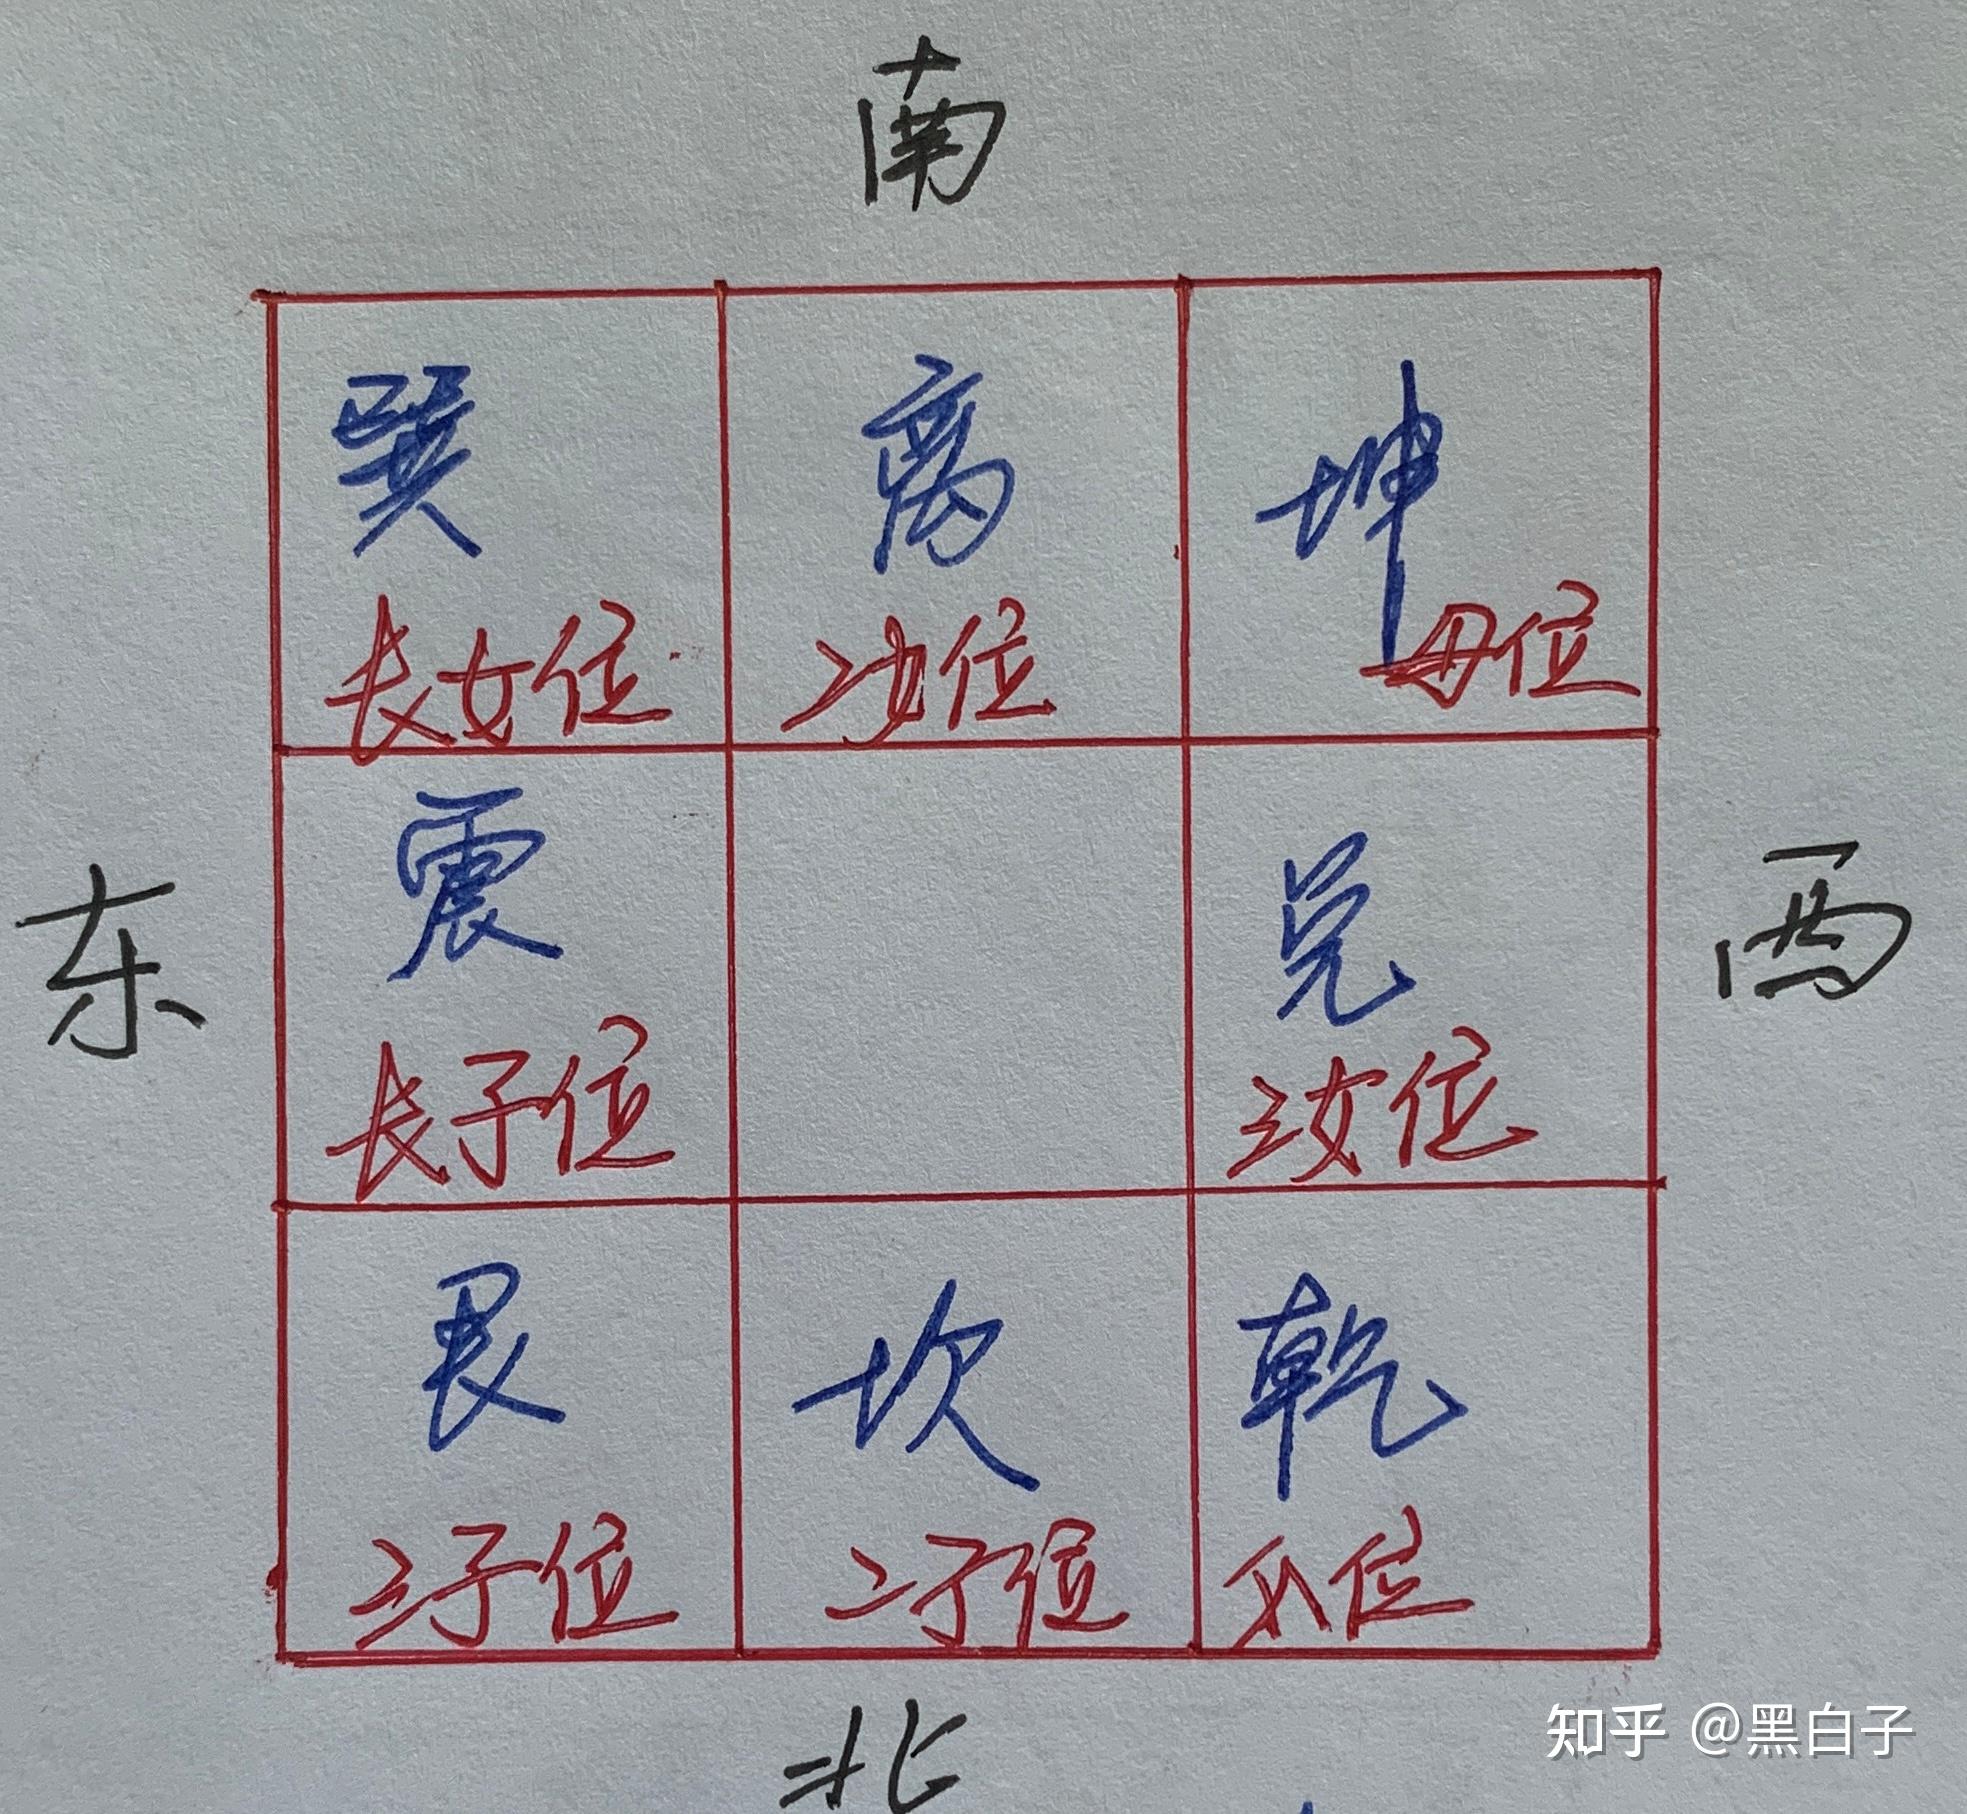 南
巽 离 坤
长女位 二女位 母位
东 震 兑 西
长子位 三女位
艮 坎 乾
三子位 二子位 父位
北
知乎 @黑白子